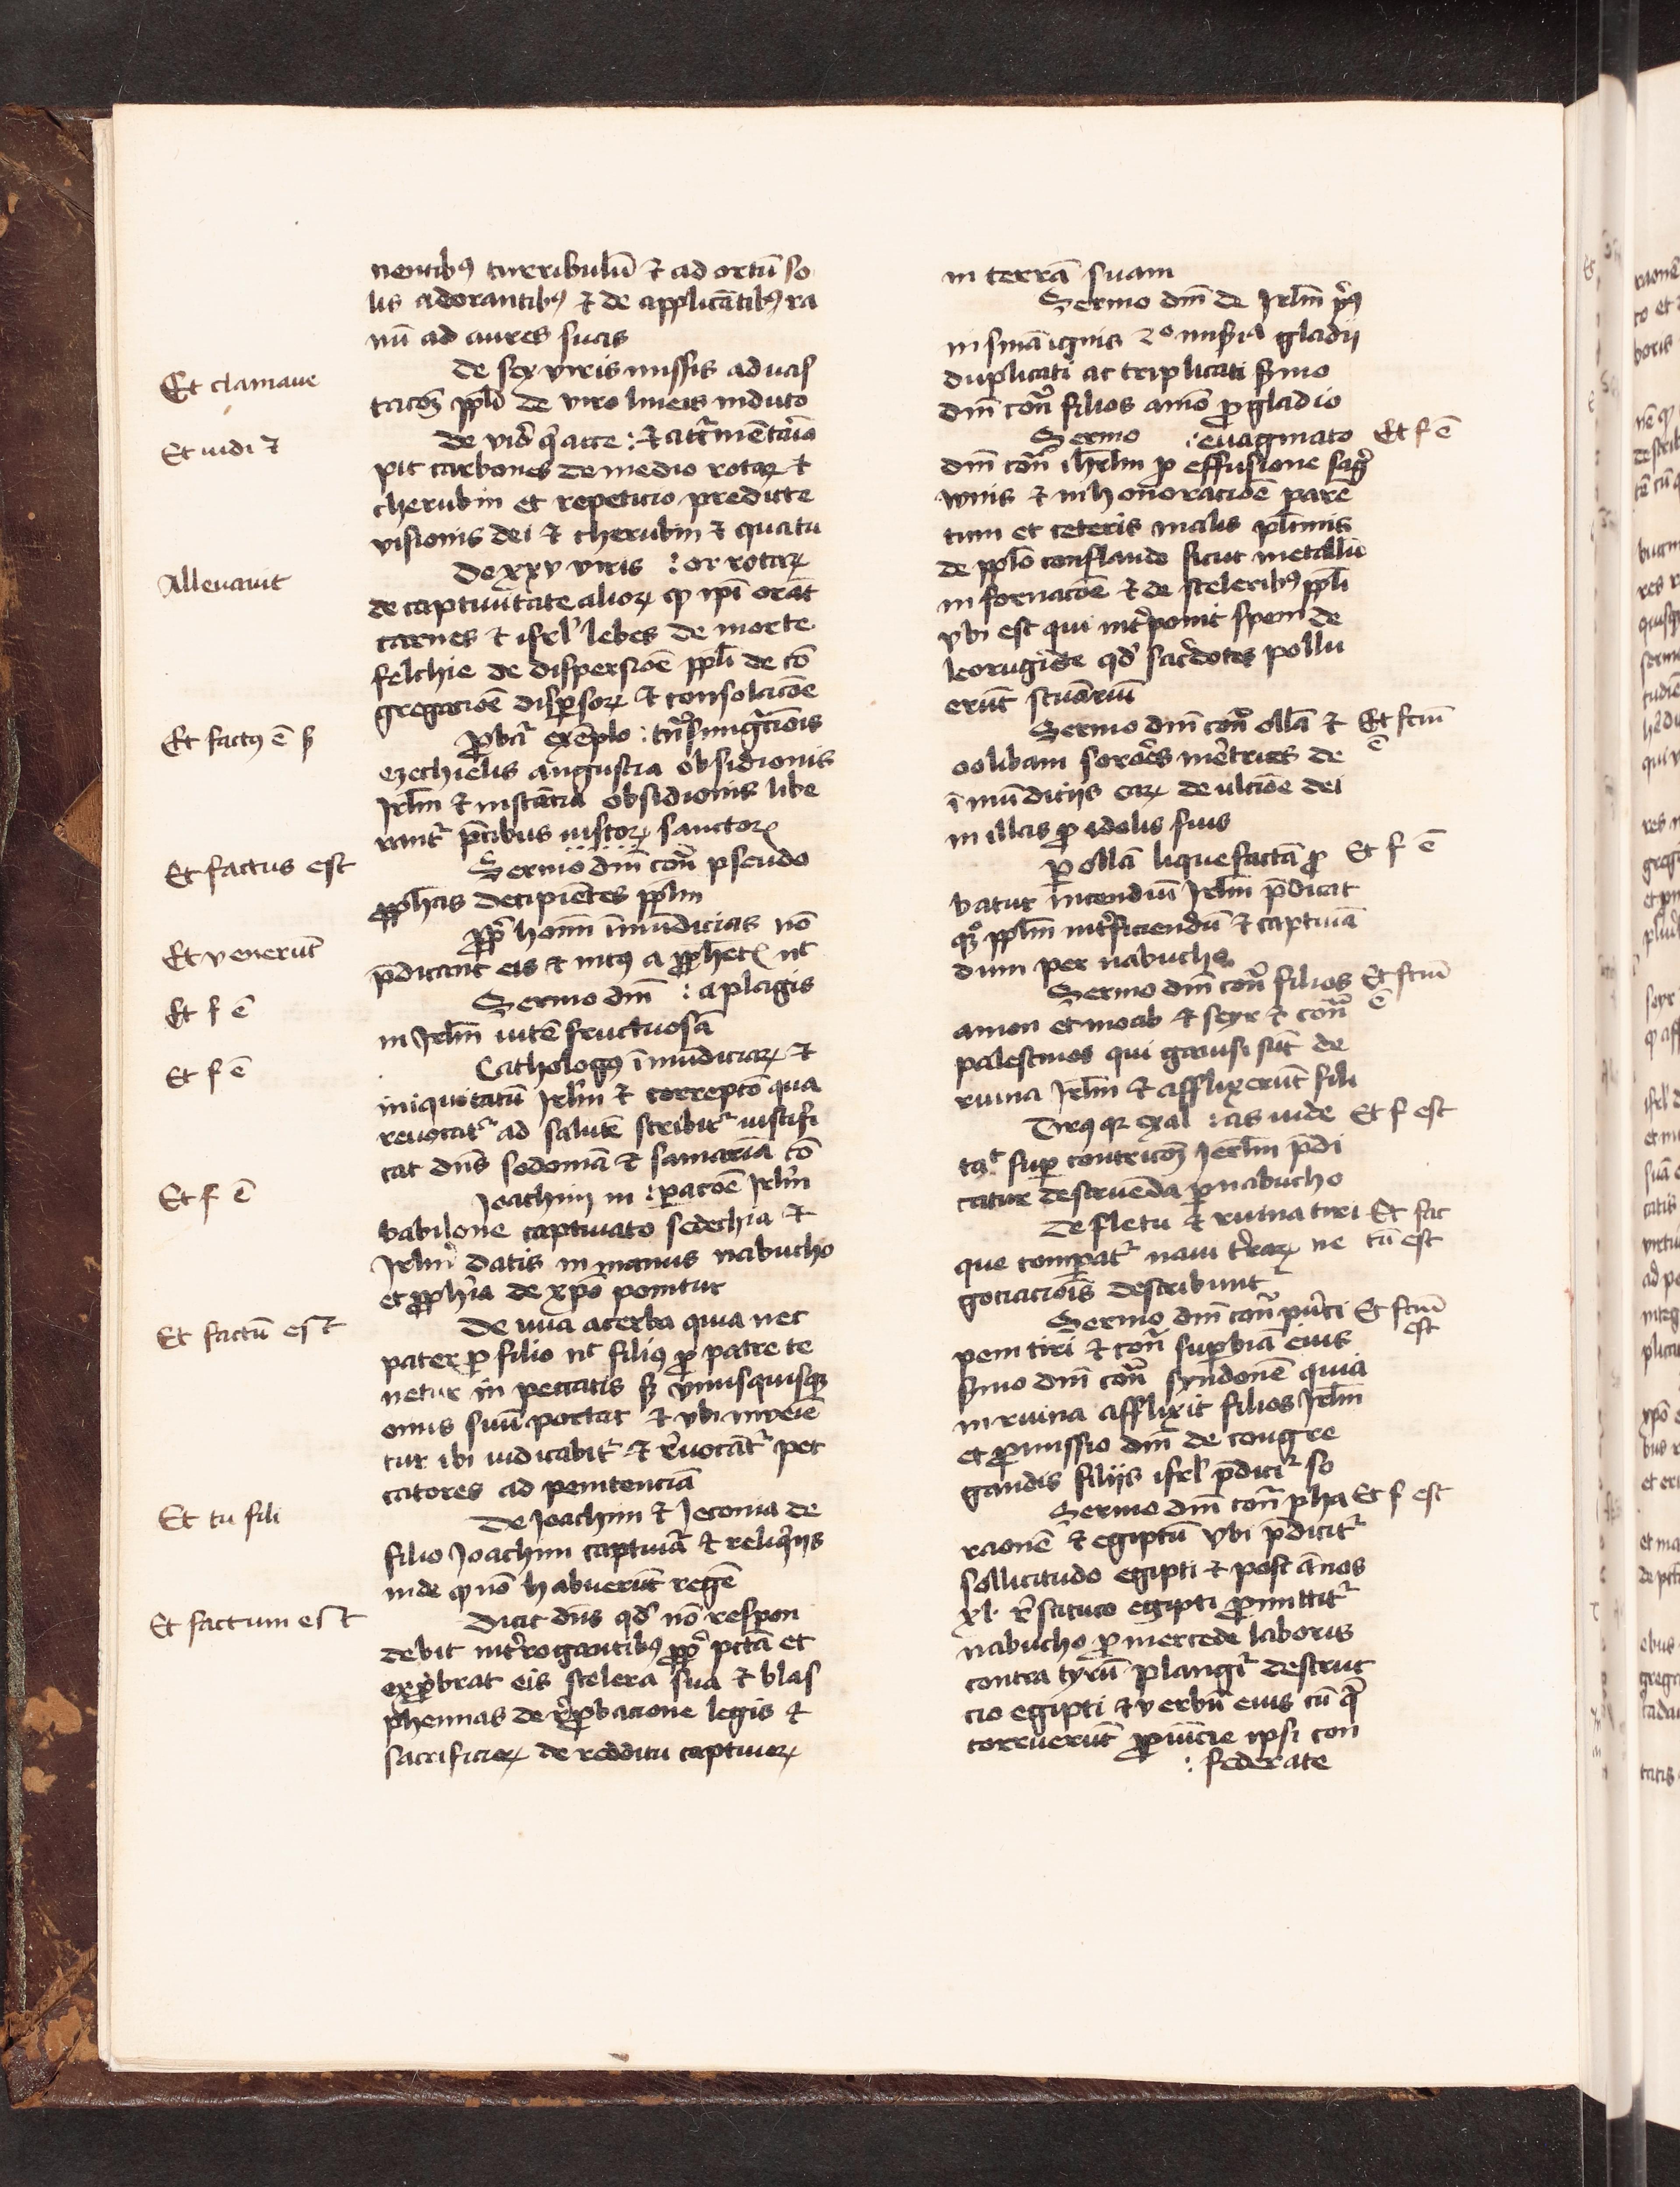 nentibꝰ turribulū ⁊ ad ortū so
lis adorantibꝰ ⁊ de applicātibꝰ ra
nū ad aures suas
Et clamaue
de sex viris missis ad uas
tacōꝫ ppl̄i de viro lineis induto
Et uidi ⁊
de vid̄ q̄ acce : ⁊ att̄mēta͛io
pit carbones de medio rotaꝝ ⁊
cherubin et repeticio predicte
visionis dei ⁊ cherubin ⁊ quatu
Alleuauit
de xxv viris : or rotaꝝ
de captiuitate alioꝝ ꝙ ip̄i erāt
carnes ⁊ isrl̓ lebes de morte
felchie de dispersiōe ppl̄i de cō
gregatiōe dispersoꝝ ⁊ consolacōe
Et factꝰ ē s̄
ꝓbat͛ exēplo : tn̄smigr̄acōis
ezechielis angustia obsidionis
Jrlm̄ ⁊ instācia obsidionis libe
rant͛ p̄cibus iustoꝝ sanctoꝝ
Et factus est
Sermo dn̄i cōn̄ pseudo
ꝓph̄as decipiētes ppl̄m
Et venerūt
ꝓpt̄ hoīm īmūdicias nō
p̄dicant eis ⁊ intꝰ a ꝓphet͛ nc̄
Et f ē
Sermo dn̄i : a plagis
in Jrlm̄ uitē fructuosā
Et f ē
Cathologꝰ īmūdiciaꝝ ⁊
iniquitatū Jrlm̄ ⁊ correptō qua
reuocat͛ ad salutē scribit͛ iustifi
cat dn̄s sodomā ⁊ samariā cō
Et f ē
Joachim in : paraōe Jrlm̄
babilone captiuato sedechia ⁊
Jrlm̄ datis in manus nabucho
et ꝓph̄ia de xp̄o ponitur
Et factū est
De uua acerba quia nec
pater ꝓ filio nc̄ filiꝰ ꝓ patre te
netur in peccatis sꝫ vnusquisqꝫ
onus suū portat ⁊ vbi inveīe
tur ibi iudicabit͛ ⁊ r̄uocāt͛ pec
catores ad penitenciā
Et tu fili
De Joachim ⁊ Jeconia de
filio Joachim captiuat͛ ⁊ reliq̄iis
inde ꝙ nō habuerūt regē
Et factum est
Dicit dn̄s qd̓ nō respon
debit int̄rogantibꝰ ꝓpt̄ pctā et
exꝓbrat eis scelera sua ⁊ blas
phemias de r̄ꝓbacione legis ⁊
sacrificioꝝ de redditu captiuoꝝ
in terrā suam
Sermo dn̄i de Jrlm̄ p̄ꝰ
in flm̄a ignis 2º miseria gladii
duplicati ac triplicati s̄mo
dn̄i cōn̄ filios amō ꝓ gladio
Sermo : euaginato Et f ē
dn̄i cōn̄ ihrlm̄ ꝓ effusione sāḡ
winis ⁊ inhonoraciōe parē
tum et ceteris malis pl̄imis
de ppl̄o conflando sicut metallū
in fornacōe ⁊ de sceleribꝰ ppl̄i
vbi est qui int̄ponit spem de
leo rugiēte qd̓ sac̄dotes pollu
erūt sc̄uāriū
Sermo dn̄i cōn̄ ollā ⁊ Et fcm̄
ē
oolibam sorores mētrices de
īmūdiciis eaꝝ de ulciōe dei
in illas ꝓ idolis suis
p ollā liquefactā ꝓ Et f ē
batur incendiū Jrlm̄ p̄dicat
qꝫ ppl̄m int̄ficiendū ⁊ captiuā
dum per nabucho
Sermo dn̄i cōn̄ filios Et fcm̄
ē
amon et moab ⁊ seyr ⁊ cōn̄
palestinos qui gauisi sūt de
ruina Jrlm̄ ⁊ afflixerūt fili
Tirꝰ qꝛ exal : as iude Et f est
tat͛ sup contricōꝫ Jerlm̄ p̄di
catur destruēda p nabucho
De fletu ⁊ ruina tiri Et fac
que compat͛ naui t̄raꝝ ne tū est
gociaciōis describunt͛
Sermo dn̄i cōn̄ p̄nci Et fcm̄
est
pem tiri ⁊ cōn̄ supbiā eius
s̄mo dn̄i cōn̄ syndonē quia
in ruina afflixit filios Jrlm̄
et ꝓmissio dn̄i de congre
gandis filiis isrl̓ p̄dicit͛ so
Sermo dn̄i cōn̄ pha Et f est
raonē ⁊ egiptū vbi p̄dicit͛
sollicitudo egipti ⁊ post ānos
xl· r̄stitucō egipti ꝓmittit͛
nabucho ꝓ mercede laboris
contra tyrū plangit͛ destruc
cio egipti ⁊ verbū eius cū q̄
corruerūt ꝓuīcie ipsi con
: federate